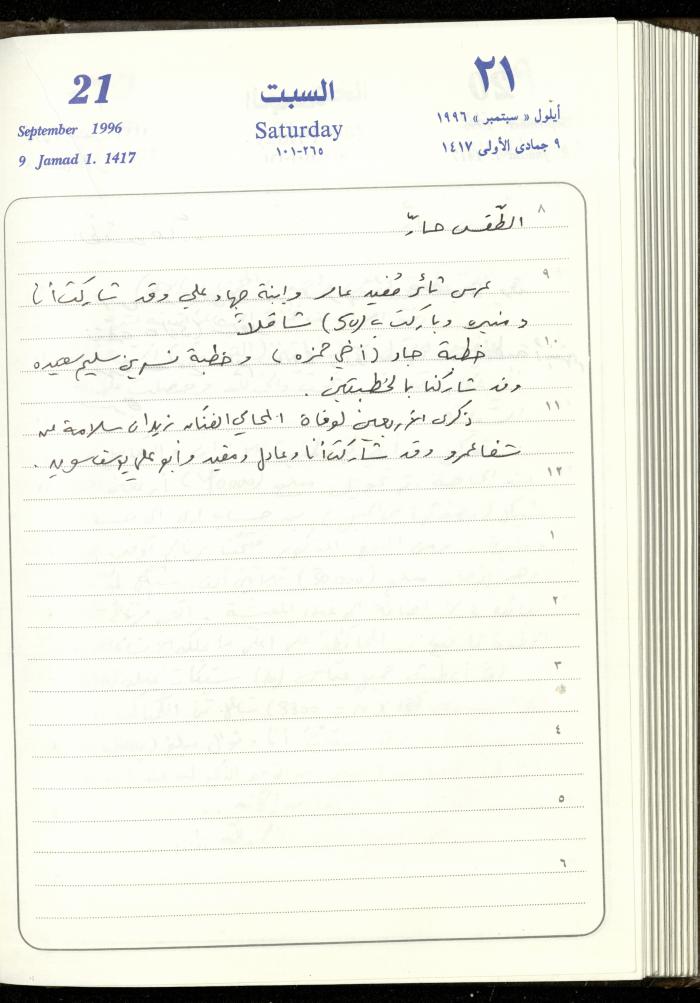 21
السبت
٢١
September 1996
Saturday
أيلول « سبتمبر » ١٩٩٦
9 Jamad 1. 1417
٢٦٥-١٠١
٩ جمادى الأولى ١٤١٧
٨
الطقس حارّ
٩
عرس ثائر مُفيد عامر وابنة جهاد علي وقد شاركت أنا
و منيره وباركت بـ (50) شاقلاً
١٠
خطبة جاد (أخي حمزه) و خطبة نسرين سليم سعيده
وقد شاركنا بالخطبتين .
١١
ذكرى الأربعين لوفاة المحامي الفنّان زيدان سلامة من
شفاعمرو وقد شاركت أنا وعادل ومفيد وأبو علي يوسف
١٢
١
٢
٣
٤
٥
٦